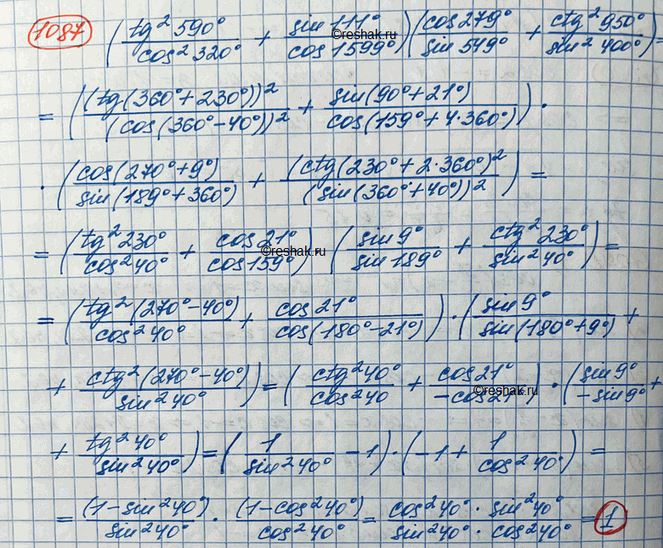 1087 (tg² 590° / cos² 320° + sin 111° / cos 1599°)(cos 279° / sin 549° + ctg² 950° / sin² 400°) =
= ((tg(360° + 230°))² / (cos(360° - 40°))² + sin(90° + 21°) / cos(159° + 4·360°)) ·
· (cos(270° + 9°) / sin(189° + 360°) + (ctg(230° + 2·360°)² / (sin(360° + 40°))²) =
= (tg² 230° / cos² 40° + cos 21° / cos 159°) (sin 9° / sin 189° + ctg² 230° / sin² 40°) =
= (tg² (270° - 40°) / cos² 40° + cos 21° / cos(180° - 21°)) · (sin 9° / sin(180° + 9°) +
+ ctg² (270° - 40°) / sin² 40°) = (ctg² 40° / cos² 40 + cos 21° / -cos 21°) · (sin 9° / -sin 9° +
+ tg² 40° / sin² 40°) = (1 / sin² 40° - 1) · (-1 + 1 / cos² 40°) =
= (1 - sin² 40°) / sin² 40° · (1 - cos² 40°) / cos² 40° = cos² 40° · sin² 40° / sin² 40° · cos² 40° = 1
©reshak.ru
©reshak.ru
©reshak.ru